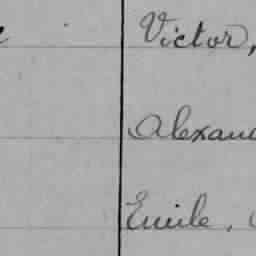 Victor,
Alexand
Emile,